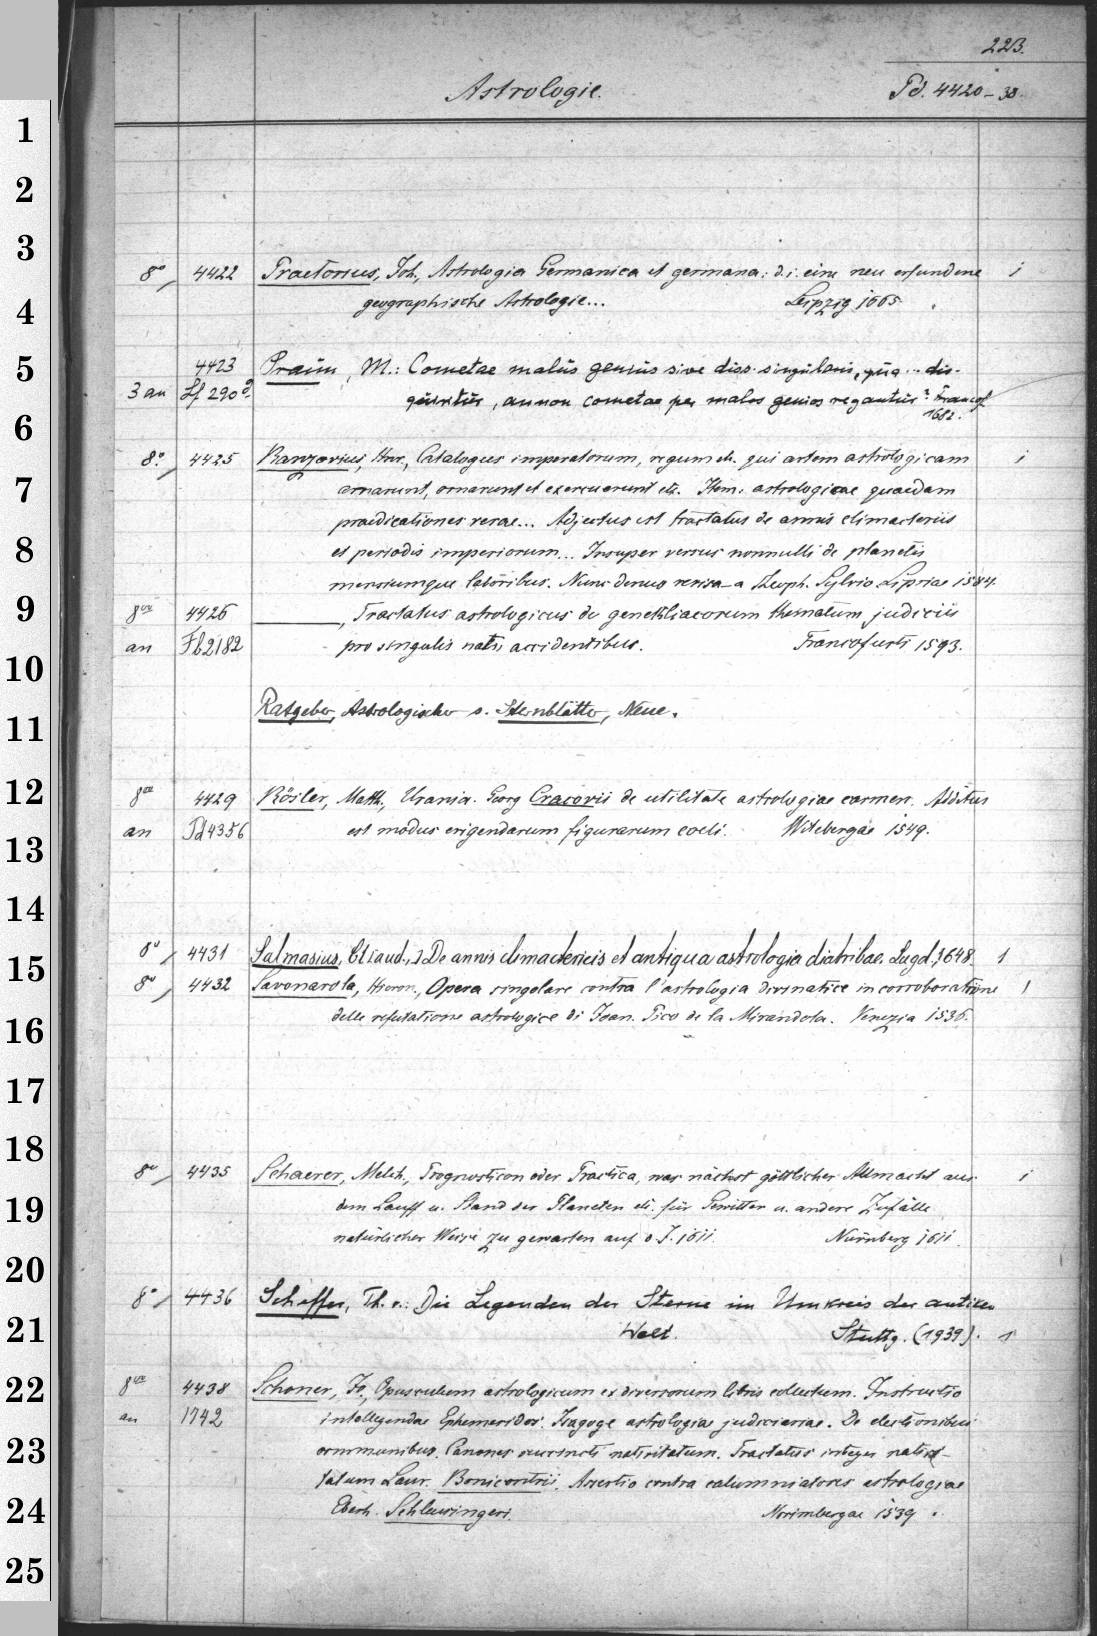 223.
Astrologie. Pd. 4420-38.
1
2
3
8° 4422 Praetorius, Joh., Astrologia Germanica et germana: d.i. eine neu erfundene 1
geographische Astrologie... Leipzig 1665.
4
5
4423 Praun, M.: Cometae malus genius sive diss. singularis, qua... dis-
3 an Lf 290 quiritur, an non cometae per malos genios regantur? Francof.
1682.
6
8° 4425 Ranzovius, Hnr., Catalogus imperatorum, regum etc. qui artem astrologicam 1
amarunt, ornarunt et exercuerunt etc. Item: astrologicae quaedam
7
praedicationes verae... Adjectus est tractatus de annis climacteriis
8
et periodis imperiorum... Insuper versus nonnulli de planetis
mensiumque laboribus. Nunc denuo revisa a Theoph. Sylvio Lipsiae 1584.
9
8vo 4426 ———, Tractatus astrologicus de genethliacorum thematum judiciis
an Fb2182 pro singulis natis accidentibus. Francofurti 1593.
10
11
Ratgeber, Astrologischer s. Sternblätter, Neue.
12
8vo 4429 Rösler, Math., Urania. Georg Cracovii de utilitate astrologiae carmen. Additus
an Pd4356 est modus erigendarum figurarum coeli. Witebergae 1549.
13
14
8° 4431 Salmasius, Cl[aud.,] De annis climactericis et antiqua astrologia diatribae. Lugd., 1648. 1
15
8° 4432 Savonarola, Hieron., Opera singolare contra l'astrologia divinatice in corroboratione 1
delle refutatione astrologice di Joan. Pico de la Mirandola. Venezia 1536.
16
17
18
8° 4435 Schaerer, Melch., Prognosticon oder Practica, was nächst göttlicher Allmacht aus 1
19
dem Lauff u. Stand der Planeten etc. für Gewitter u. andere Zufälle
natürlicher Weise zu gewarten auf d. J. 1611. Nürnberg 1611.
20
8° 4436 Scheffer, Th. v.: Die Legenden der Sterne im Umkreis der antiken
21
Welt. Stuttg. (1939). 1
22
8vo 4438 Schoner, Jo., Opusculum astrologicum ex diversorum libris collectum. Instructio
an 1742 intelligendae Ephemeridos. Isagoge astrologiae judiciariae. De electionibus
23
communibus. Canones succincti nativitatum. Tractatus integer nativi-
tatum Laur. Bonicontrii. Assertio contra calumniatores astrologiae
24
Eberh. Schleusingeri. Norimbergae 1539.
25